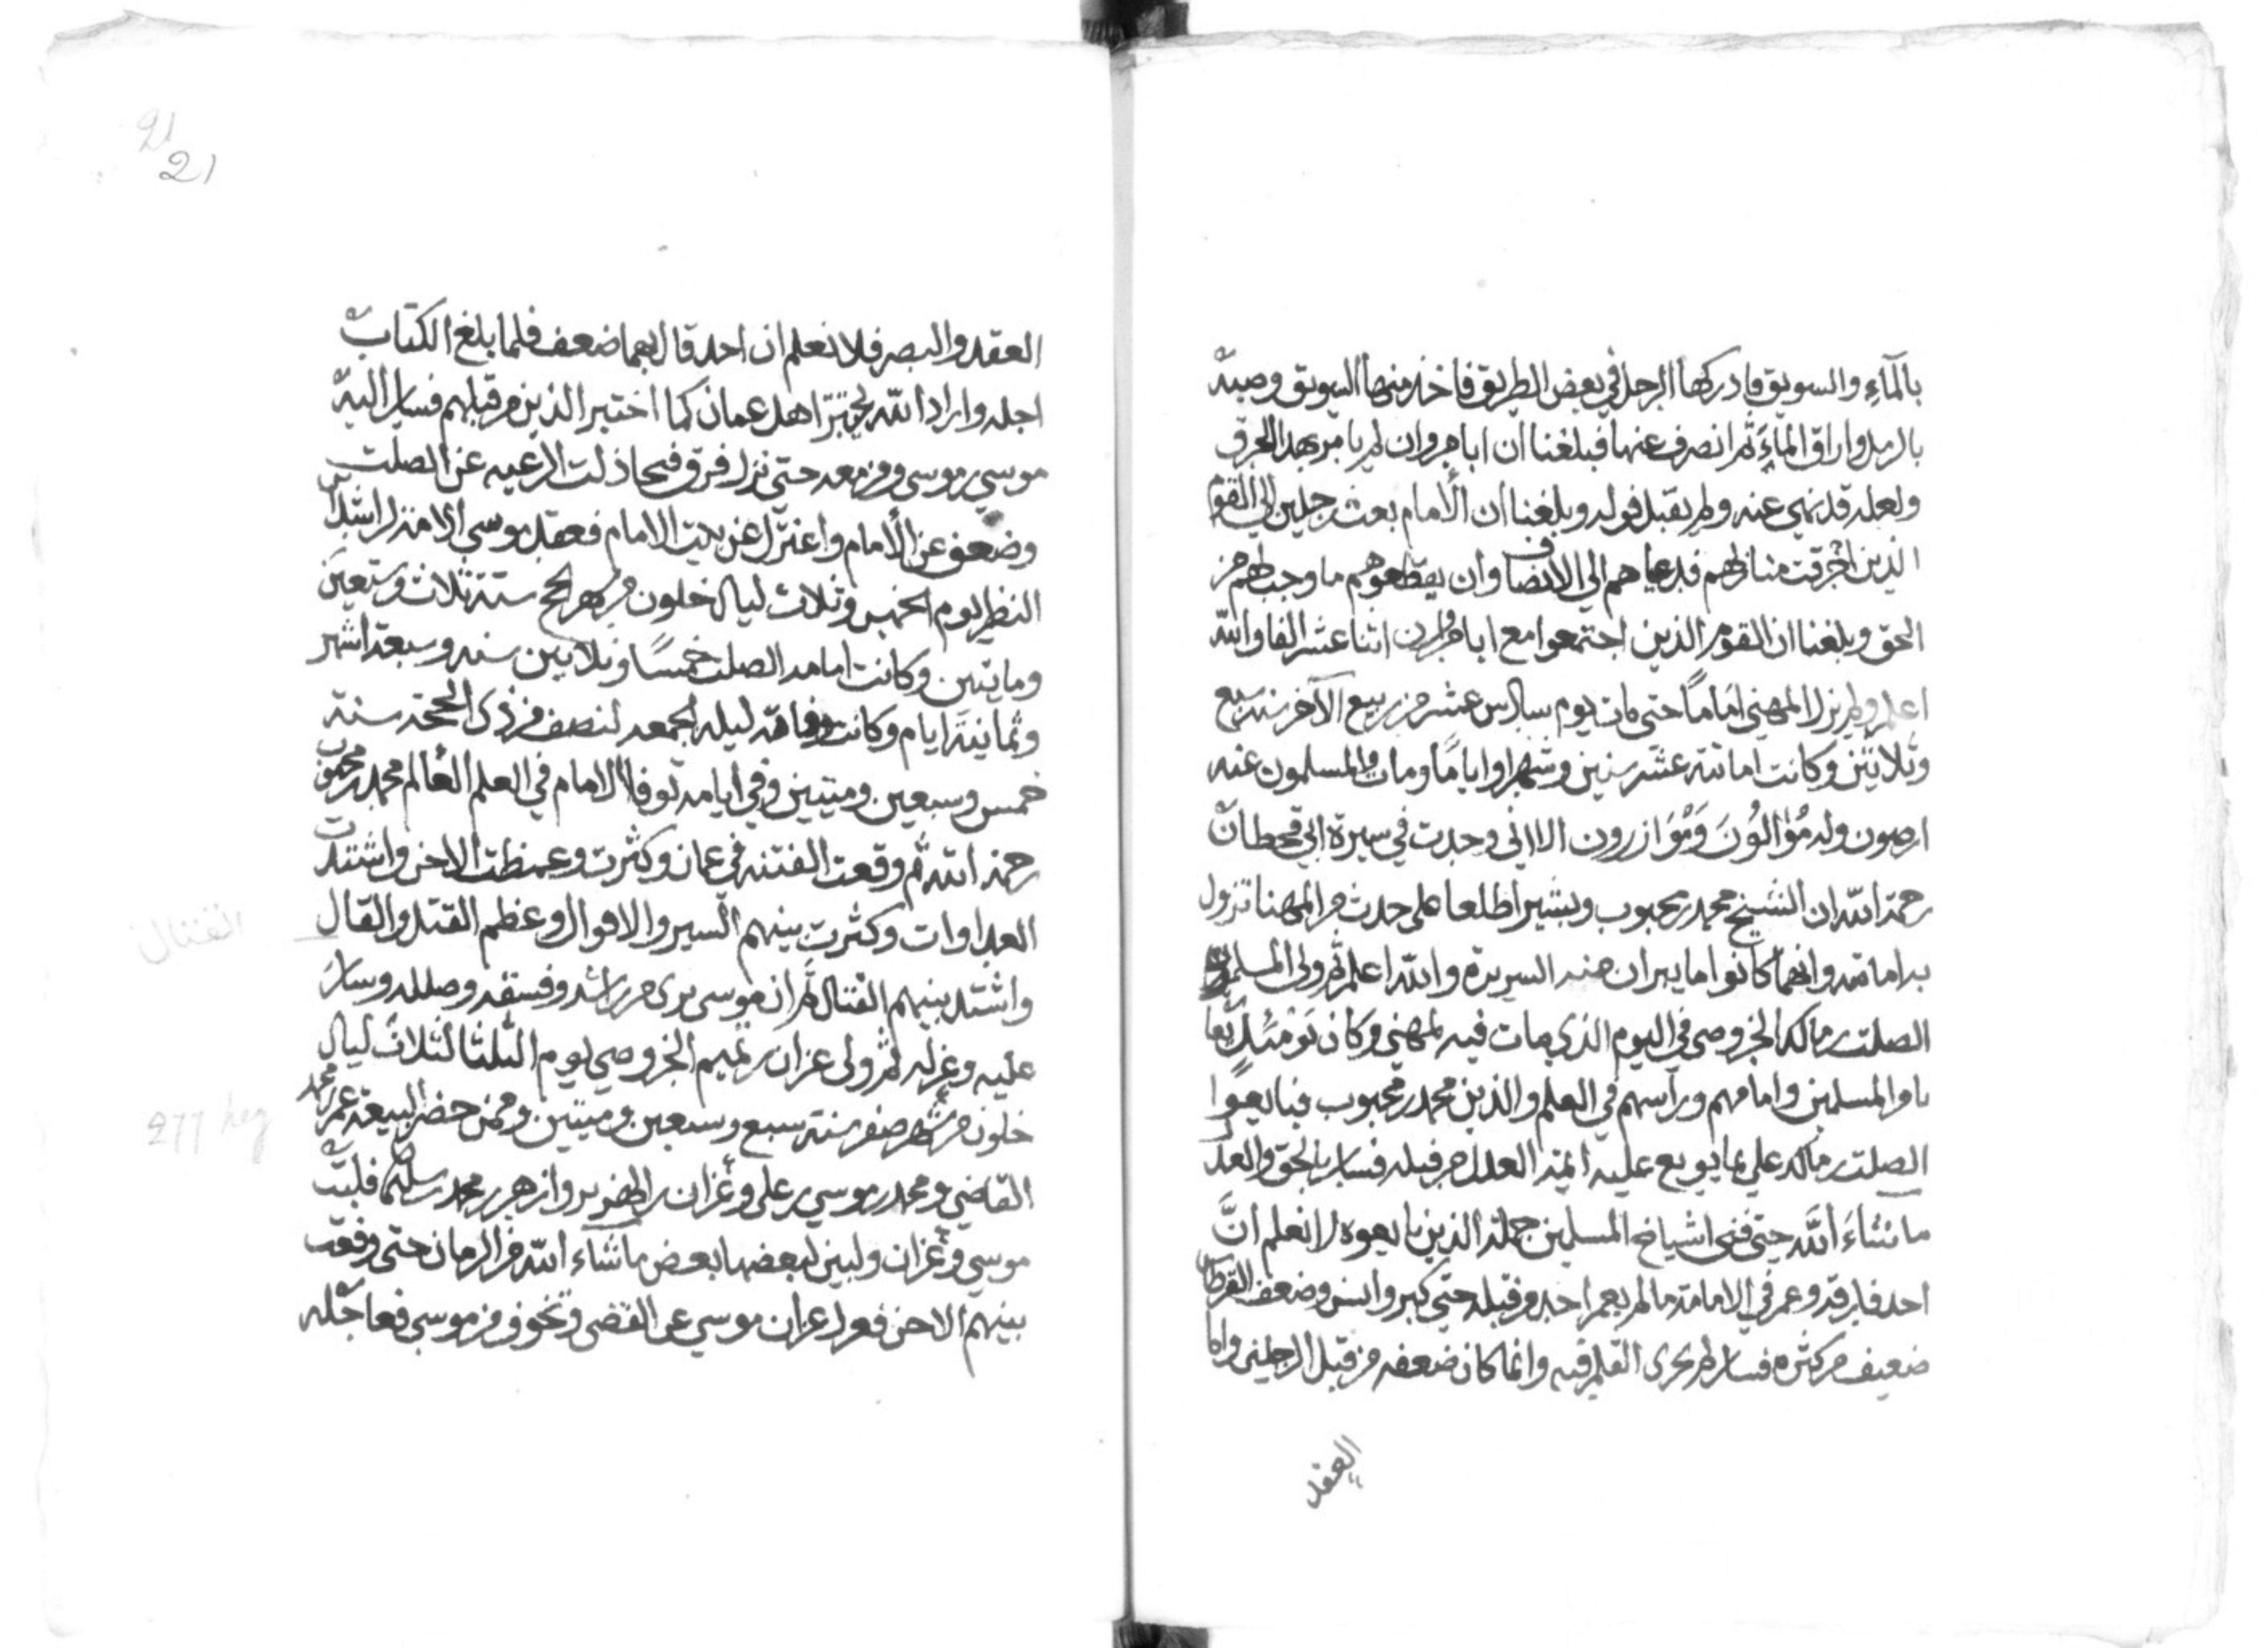 بالمآء والسويق فادركها الرجل في بعض الطريق فاخذ منها السويق وصبه
بالرمل واراق المآء ثم انصرف عنها فبلغنا ان ابا مروان لم يامر بهذا الحرق
ولعله قد نهى عنه ولم يقبل قوله وبلغنا ان الامام بعث رجلين الي القوم
الذين احرقت منازلهم فدعياهم الي الانصاف وان يعطوهم ما وجب لهم من
الحق وبلغنا ان القوم الذين اجتمعوا مع ابا مروان اثنا عشر الفا والله
اعلم ولم يزل المهنى اماما حتى مات يوم سادس عشر من ربيع الآخر سنه سبع
وثلاثين وكانت امامته عشر سنين وشهرا واياما ومات والمسلمون عنه
ارضون وله مؤالون ومؤازرون الا اني وجدت في سيرة ابي قحطان
رحمة الله ان الشيخ محمد بن محبوب وبشيرا اطلعا على حدث من المهنا تزول
به امامته وانهما كانوا ما يبران منه السريرة والله اعلم ثم ولى المسلمون
الصلت بن مالك الخروصى في اليوم الذي مات فيه المهني وكان يومئذ بقا
يا والمسلمين وامامهم ورآسهم في العلم والدين محمد بن محبوب فبايعوا
الصلت بن مالك علي ما بويع عليه ايمة العدل من قبله فسار بالحق والعدل
ما شاء الله حتى فنى اشياخ المسلمين جملة الذين بايعوه لا نعلم ان
احد فارقه وعمر في الامامة ما لم يعمر احد من قبله حتى كبر واسن وضعف
ضعيف من كثره فسار لم يجرى القلم فيه وانما كان ضعفه من قبل الرجلين واما
العقد
21
21
العقد والبصر فلا نعلم ان احد قال بهما ضعف فلما بلغ الكتاب
اجله واراد الله يختبر اهل عمان كما اختبر الذين من قبلهم فسار اليه
موسي بن موسى ومن معه حتي نزل فرق فتخاذلت الرعيه عن الصلت
وضعف عن الامام واعتزل عن بيت الامام فعقد موسى الامامة لراشد بن
النظر يوم الخميس وثلاث ليال خلون من شهر الحج سنة ثلاث وسبعين
ومايتين وكانت امامه الصلت خمسا وثلاثين سنه وسبعة اشهر
وثمانية ايام وكانت وفاته ليله الجمعه لنصف من ذي الحجة سنة
خمس وسبعين ومتيين وفي ايامه توفا الامام في العلم العالم محمد بن محبوب
رحمه الله ثم وقعت الفتنه في عمان وكثرت وعمظت الاحن واشتدت
العداوات وكثرت بينهم السير والاقوال وعظم القتل والقال
واشتد بينهم القتال ثم ان موسى برى من راشد وفسقه وضلله وسار
عليه وعزله ثم ولى عزان بن تميم الخروصي يوم الثلثا لثلاث ليال
خلون من شهر صفر سنة سبع وسبعين ومتيين وممن حضر البيعة عمر بن محمد
القاضي ومحمد بن موسي بن علي وعزان بن الهزبر وازهر بن محمد بن سليمان فلبث
موسي وعزان وليين لبعضها بعض ما شاء الله من الزمان حتى وقعت
بينهم الاحن فعزل عزان موسي عن القضى وتخوف من موسى فعاجله
القتال
277 heg